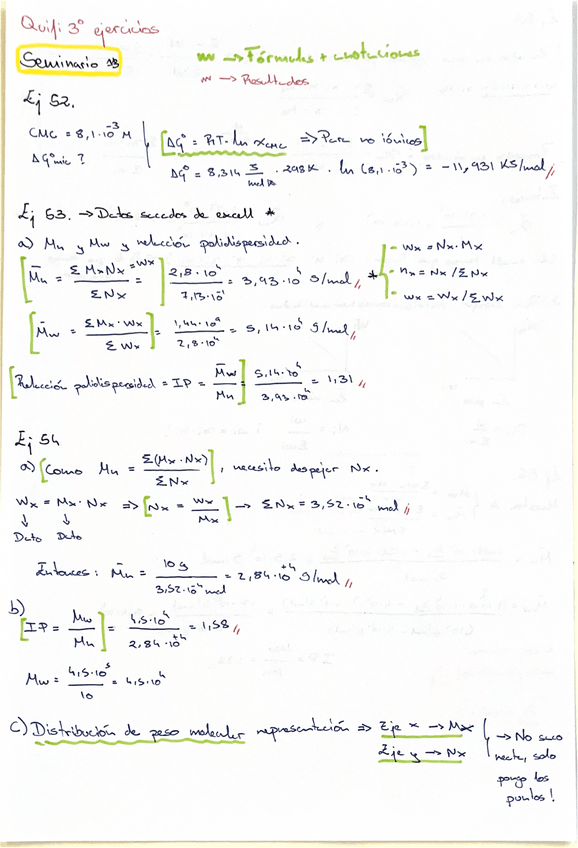 Quifi 3º ejercicios
Seminario 13
~ → Fórmulas + anotaciones
~ → Resultados
Ej 52.
CMC = 8,1·10⁻³ M
ΔG°mic ?
[ΔG° = RT·ln xCMC ⇒ Para no iónicos]
ΔG° = 8,314 J/mol·K · 298K · ln (8,1·10⁻³) = -11,931 KJ/mol //
Ej 53. → Datos sacados de excell *
a) Mn y Mw y relación polidispersidad.
[M̄n = ΣMxNx = Wx / ΣNx =] 2,8·10⁴ / 7,13·10⁻¹ = 3,93·10⁴ g/mol //
* - Wx = Nx·Mx
- nx = Nx / ΣNx
- wx = Wx / ΣWx
[M̄w = ΣMx·Wx / ΣWx] = 1,44·10⁹ / 2,8·10⁴ = 5,14·10⁴ g/mol //
[Relación polidispersidad = IP = M̄w / Mn] = 5,14·10⁴ / 3,93·10⁴ = 1,31 //
Ej 54
a) [Como Mn = Σ(Mx·Nx) / ΣNx], necesito despejar Nx.
Wx = Mx·Nx ⇒ [Nx = Wx / Mx] → ΣNx = 3,52·10⁻⁴ mol //
↓ ↓
Dato Dato
Entonces: M̄n = 10 g / 3,52·10⁻⁴ mol = 2,84·10⁺⁴ g/mol //
b)
[IP = Mw / Mn] = 4,5·10⁴ / 2,84·10⁺⁴ = 1,58 //
Mw = 4,5·10⁵ / 10 = 4,5·10⁴
C) Distribución de peso molecular representación ⇒ Eje x → Mx
Eje y → Nx
→ No saco
recta, solo
pongo los
puntos!